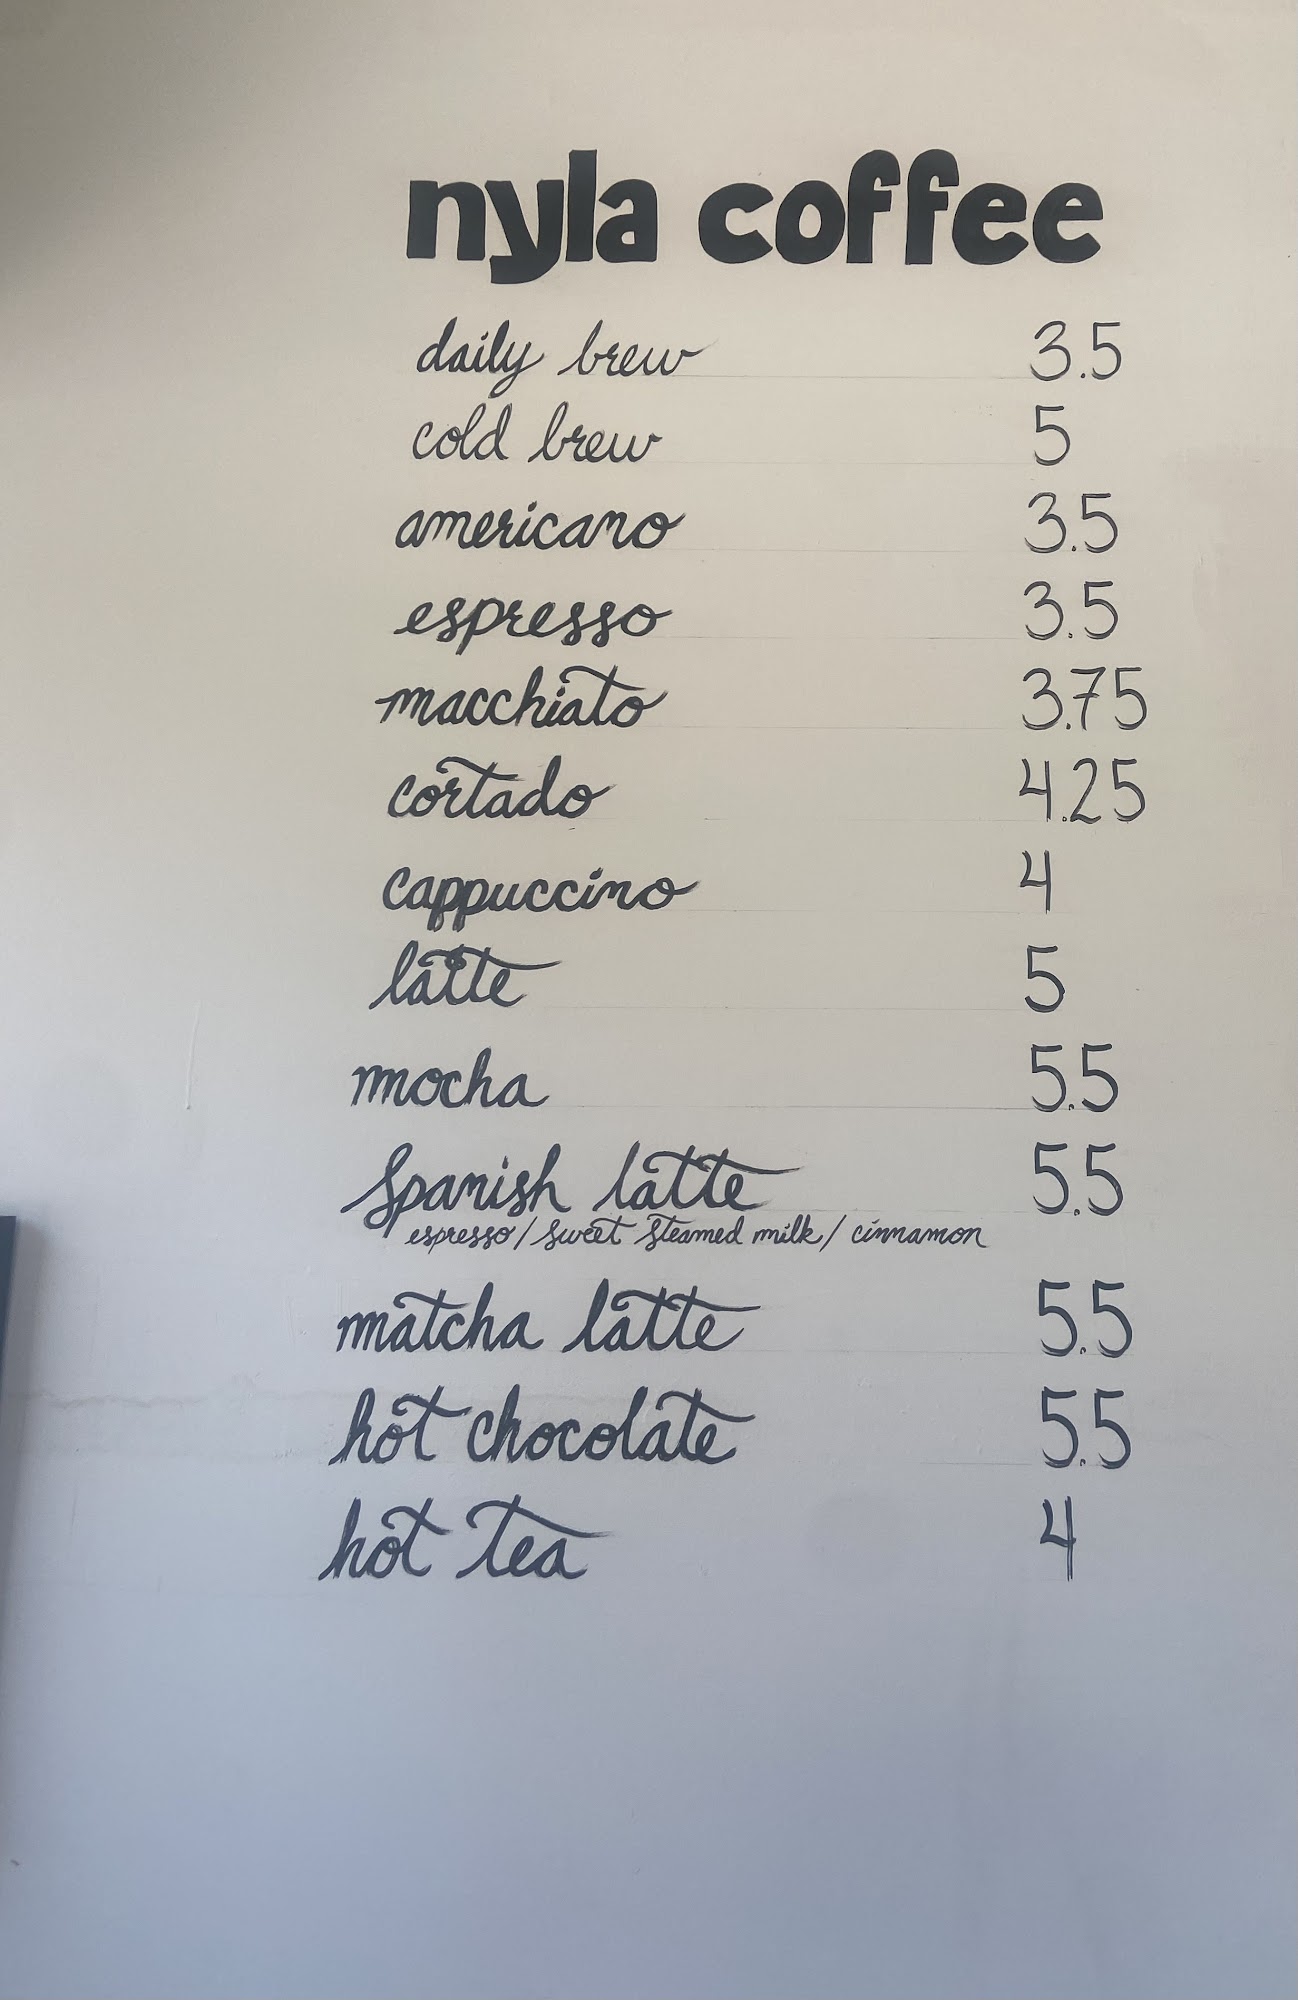 nyla coffee
daily brew 3.5
cold brew 5
americano 3.5
espresso 3.5
macchiato 3.75
cortado 4.25
cappuccino 4
latte 5
mocha 5.5
Spanish latte 5.5
espresso / sweet steamed milk / cinnamon
matcha latte 5.5
hot chocolate 5.5
hot tea 4